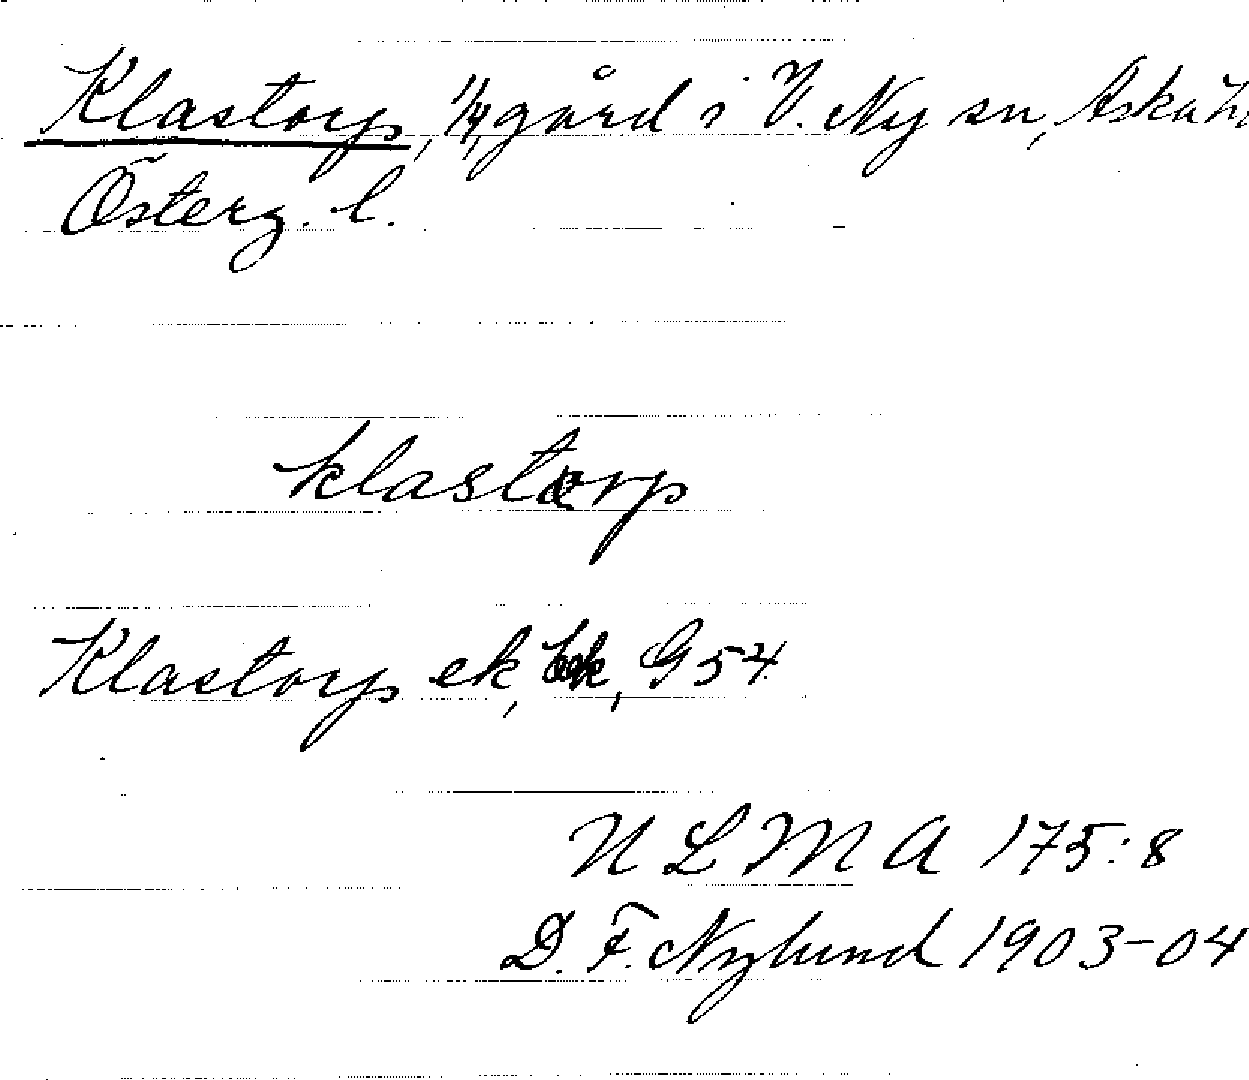 Klastorp, 1/4 gård i V. Ny sn, Aska h
Österg. l.
klastorp
Klastorp ek, G 54
U L M A 175:8
D. F. Nylund 1903-04